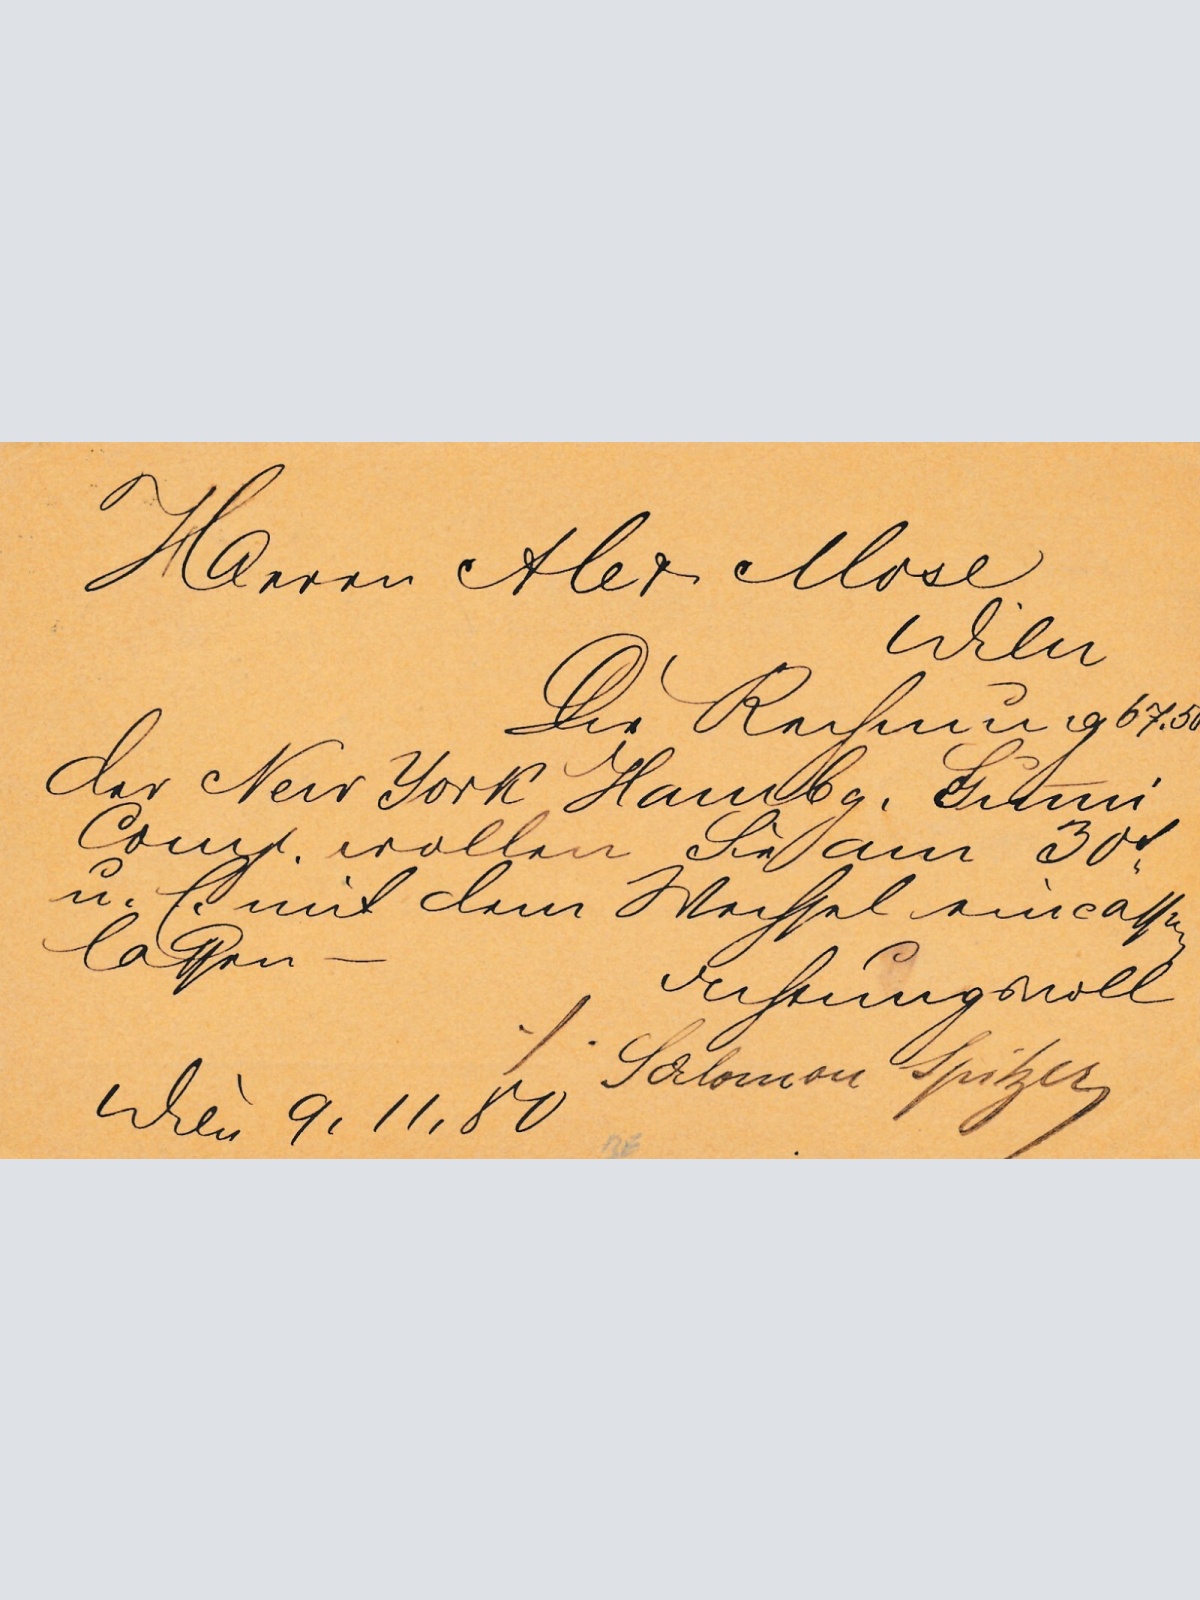 Herrn Alex Mose
Wien
Die Rechnung 67.50
der New York Hambg. Gummi
Comp. wollen Sie am 30t
mit dem Wechsel eincassen
lassen —
achtungsvoll
Salomon Spitzer
Wien 9. 11. 80